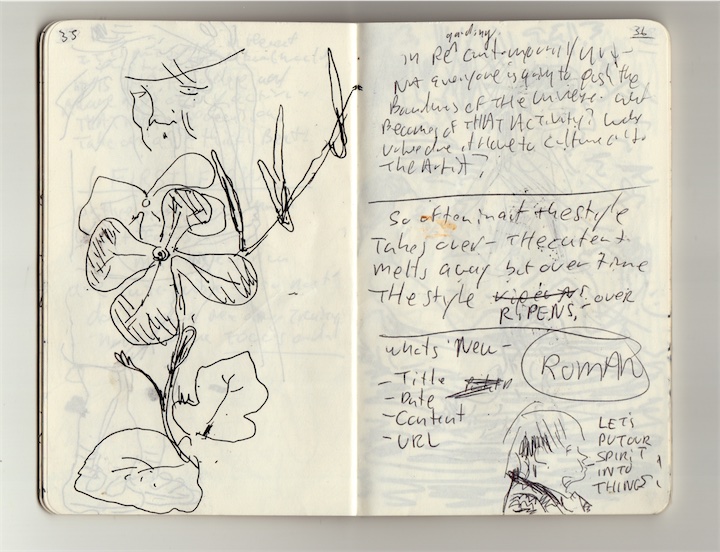 35
36
garding
in Re contemporary
Not everyone is going to push the
Boundries of the universe. and
Because of THAT ACTIVITY? what
value does it Have to culture at to
The Artist?
So often in art the style
Takes over - THe content
melts away but over time
THe style over
RIPENS,-
whats New -
- Title
- Date
- Content
- URL
ROMAN
LET'S
PUT OUR
SPIRIT
INTO
THINGS!